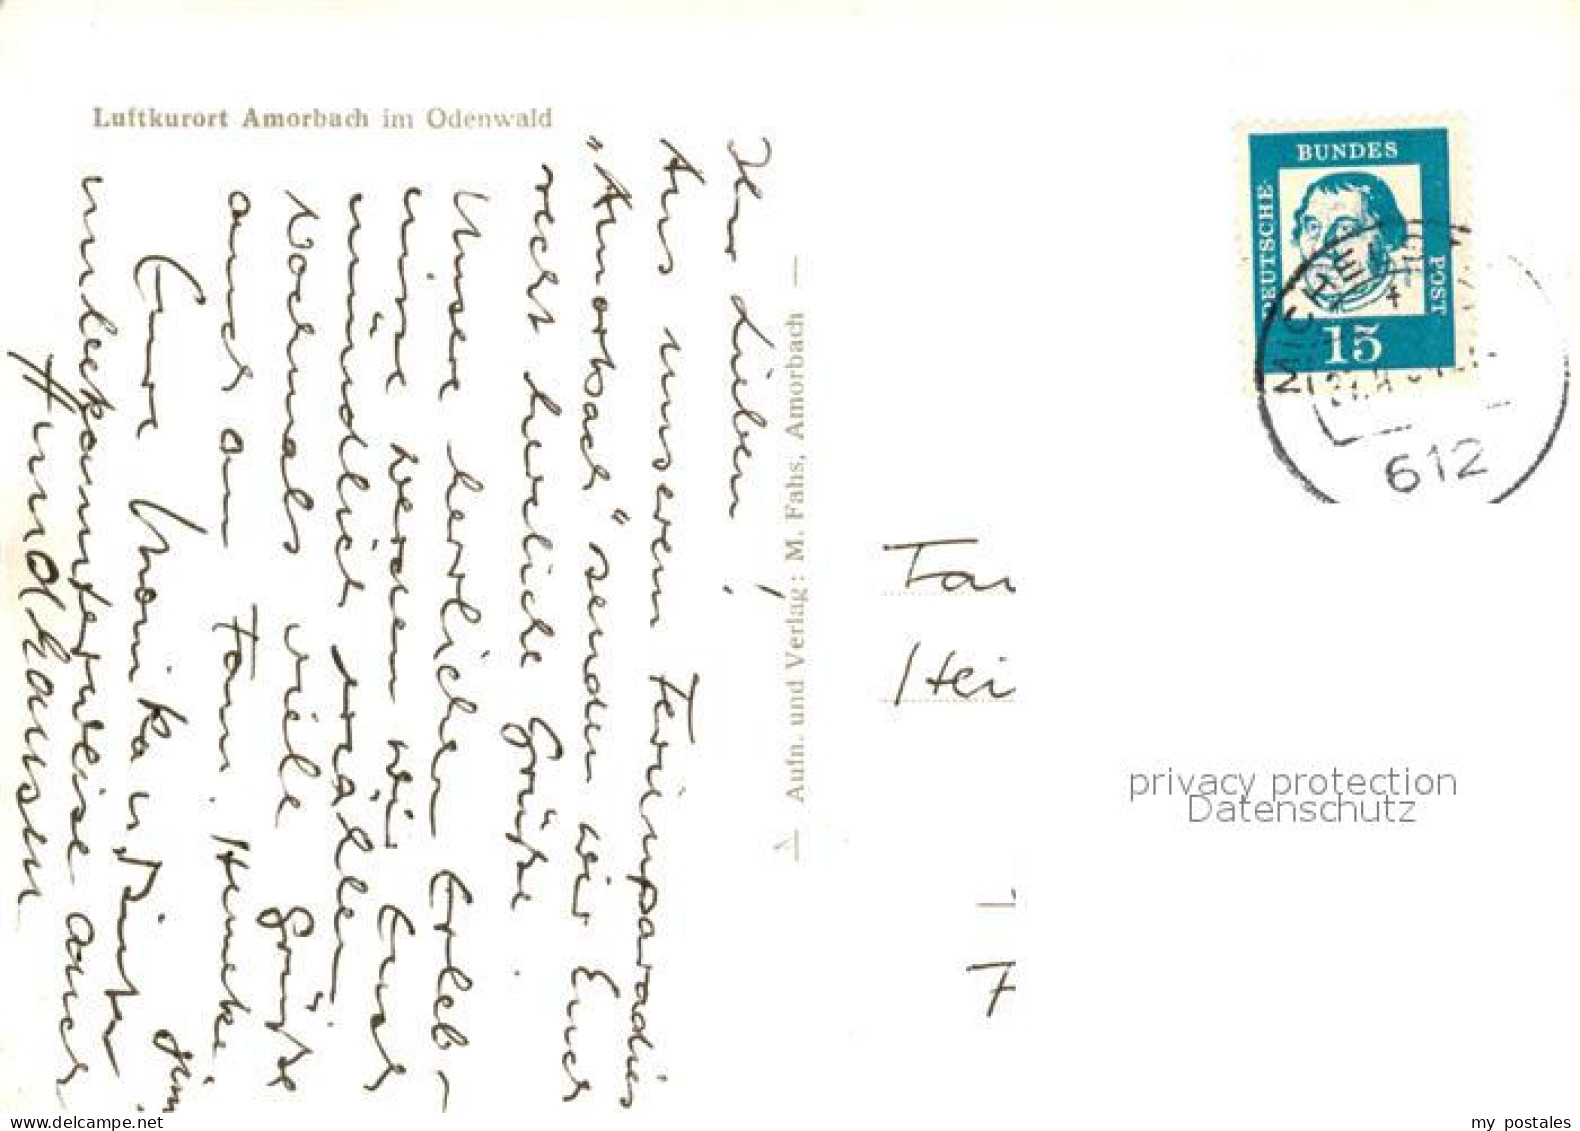 Luftkurort Amorbach im Odenwald
Ihr Lieben!
Aus unserem Ferienparadies
"Amorbach" senden wir Euch
recht herzliche Grüße.
Unsere herrlichen Erleb-
nisse werden wir Euch
mündlich erzählen
Nochmals viele Grüße
auch an Fam. Henneke
Eure Monika u. Dieter
unbekannterweise auch
Hundhausen
Aufn. und Verlag: M. Fahs, Amorbach
DEUTSCHE BUNDES POST
15
MICHEL
612
Fa
Hei
privacy protection
Datenschutz
www.delcampe.net
my postales